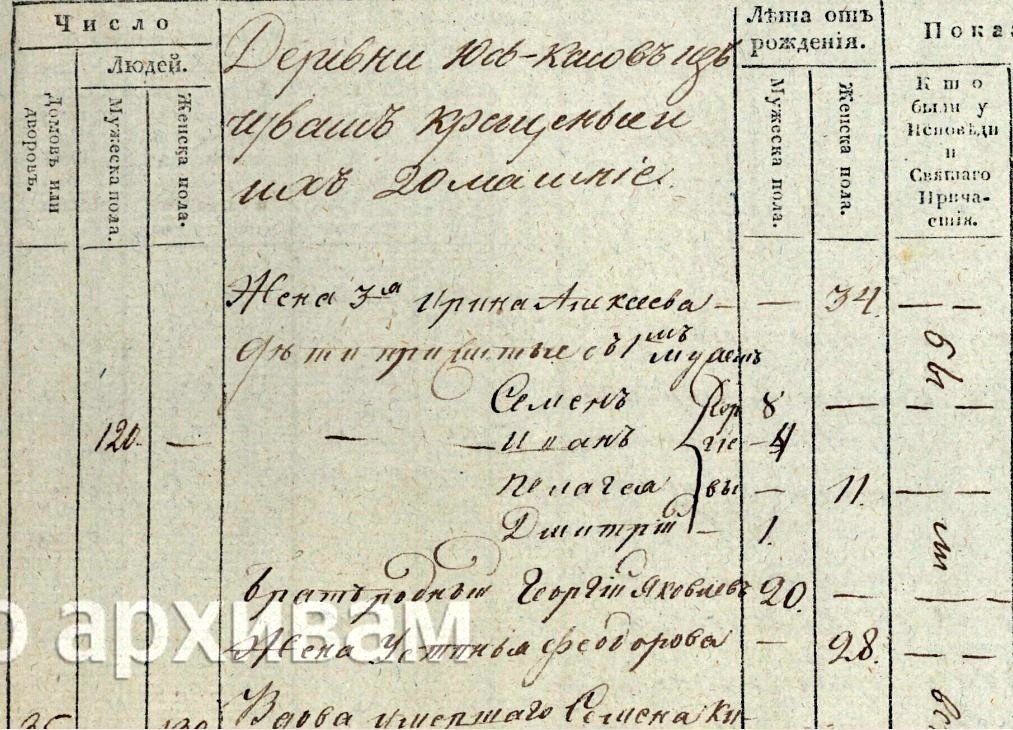 Число
Людей.
Домовъ или дворовъ.
Мужеска пола.
Женска пола.
Деревни Юсь-касовъ изъ
чувашъ крещеныи
ихъ домашніе.
Лѣта отъ рожденія.
Мужеска пола.
Женска пола.
Пока
Кто были у Исповѣди и Святаго Прича-стія.
Жена 3я Ирина Алексеева — — 34. — —
дѣти прижитые съ 1мъ мужемъ
Семенъ 8 — — —
120. — — — Иванъ 4
Геор гіе вы
Пелагея — 11. — —
Дмитрій — 1.
бы
Братъ родный Георгій Яковлевъ 20. — — —
Жена Устинья Феодорова — 28. — —
Вдова умершаго Семена Ки-
о архивам